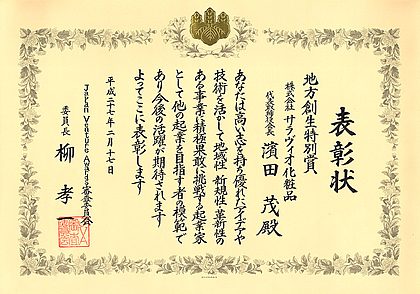 表彰状
地方創生特別賞
株式会社 サラヴィオ化粧品
代表取締役会長 濱田 茂 殿
あなたは高い志を持ち優れたアイデアや
技術を活かして地域性 新規性 革新性の
ある事業に積極果敢に挑戦する起業家
として他の起業を目指す者の模範で
あり今後の活躍が期待されます
よってここに表彰します
平成二十八年二月十七日
Japan Venture Awards審査委員会
委員長 柳 孝一